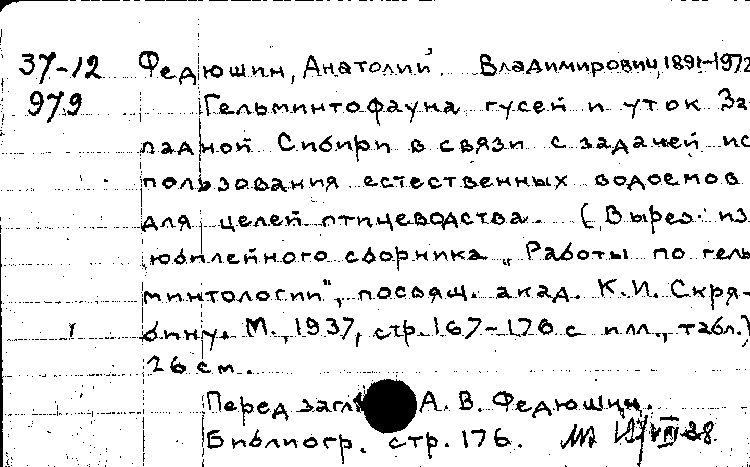 37-12 Федюшин, Анатолий Владимирович, 1891-1972
979 Гельминтофауна гусей и уток За-
падной Сибири в связи с задачей ис
пользования естественных водоемов
для целей птицеводства. (Вырез. из
юбилейного сборника „Работы по гель
минтологии", посвящ. акад. К.И. Скря-
бину. М., 1937, стр. 167-176 с илл., табл.)
26 см.
Перед загл. А. В. Федюшин.
Библиогр. стр. 176.